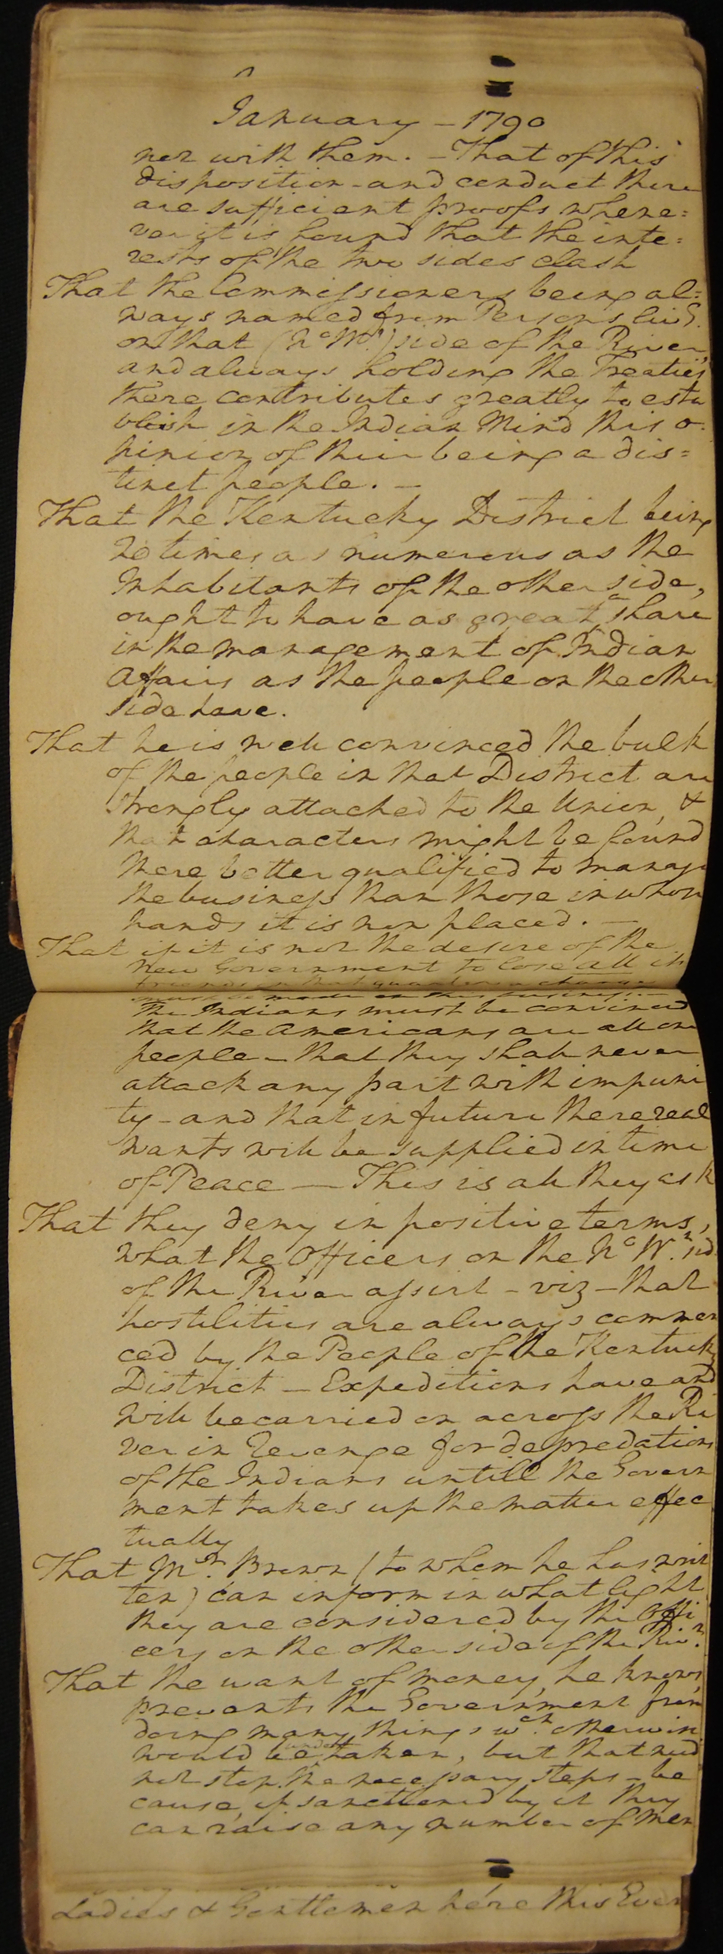 January — 1790
ner with them. — That of this
disposition and conduct there
are sufficient proofs whene=
ver it is found that the inte=
rests of the two sides clash
That the Commissioners being al=
ways named from Persons livg.
on that (No. Wn.) side of the River,
and always holding the Treaties
there contributes greatly to esta
blish in the Indian Mind this o-
pinion of their being a dis=
tinct people. —
That the Kentucky District being
20 times as numerous as the
Inhabitants of the other side,
ought to have as great a share
in the management of Indian
Affairs as the people on the other
side have.
That he is well convinced the bulk
of the people in that District are
strongly attached to the Union, &
that characters might be found
there better qualified to manage
the business than those in whose
hands it is now placed. —
That if it is not the desire of the
New Government to lose all its
friends in that quarter a change
must be made in this business —
the Indians must be convinced
that the Americans are all one
people — that they shall never
attack any part with impuni
ty — and that in future there real
wants will be supplied in time
of Peace — This is all they ask
That they deny in positive terms,
what the Officers on the No. Wn. sid
of the River assert — viz — that
hostilities are always commen
ced by the People of the Kentucky
District — Expeditions have and
will be carried on across the Ri
ver in revenge for depredations
of the Indians untill the Govern
ment takes up the matter effec
tually
That Mr. Brown (to whom he has writ
ten) can inform in what light
they are considered by the Offi
cers on the other side of the Rivr.
That the want of money, he knows
prevents the Government from
doing many things wch. otherwise
would be undertaken, but that need
not stop the necessary steps — be
cause, if sanctioned by it they
can raise any number of Men
Ladies & Gentlemen here this Even